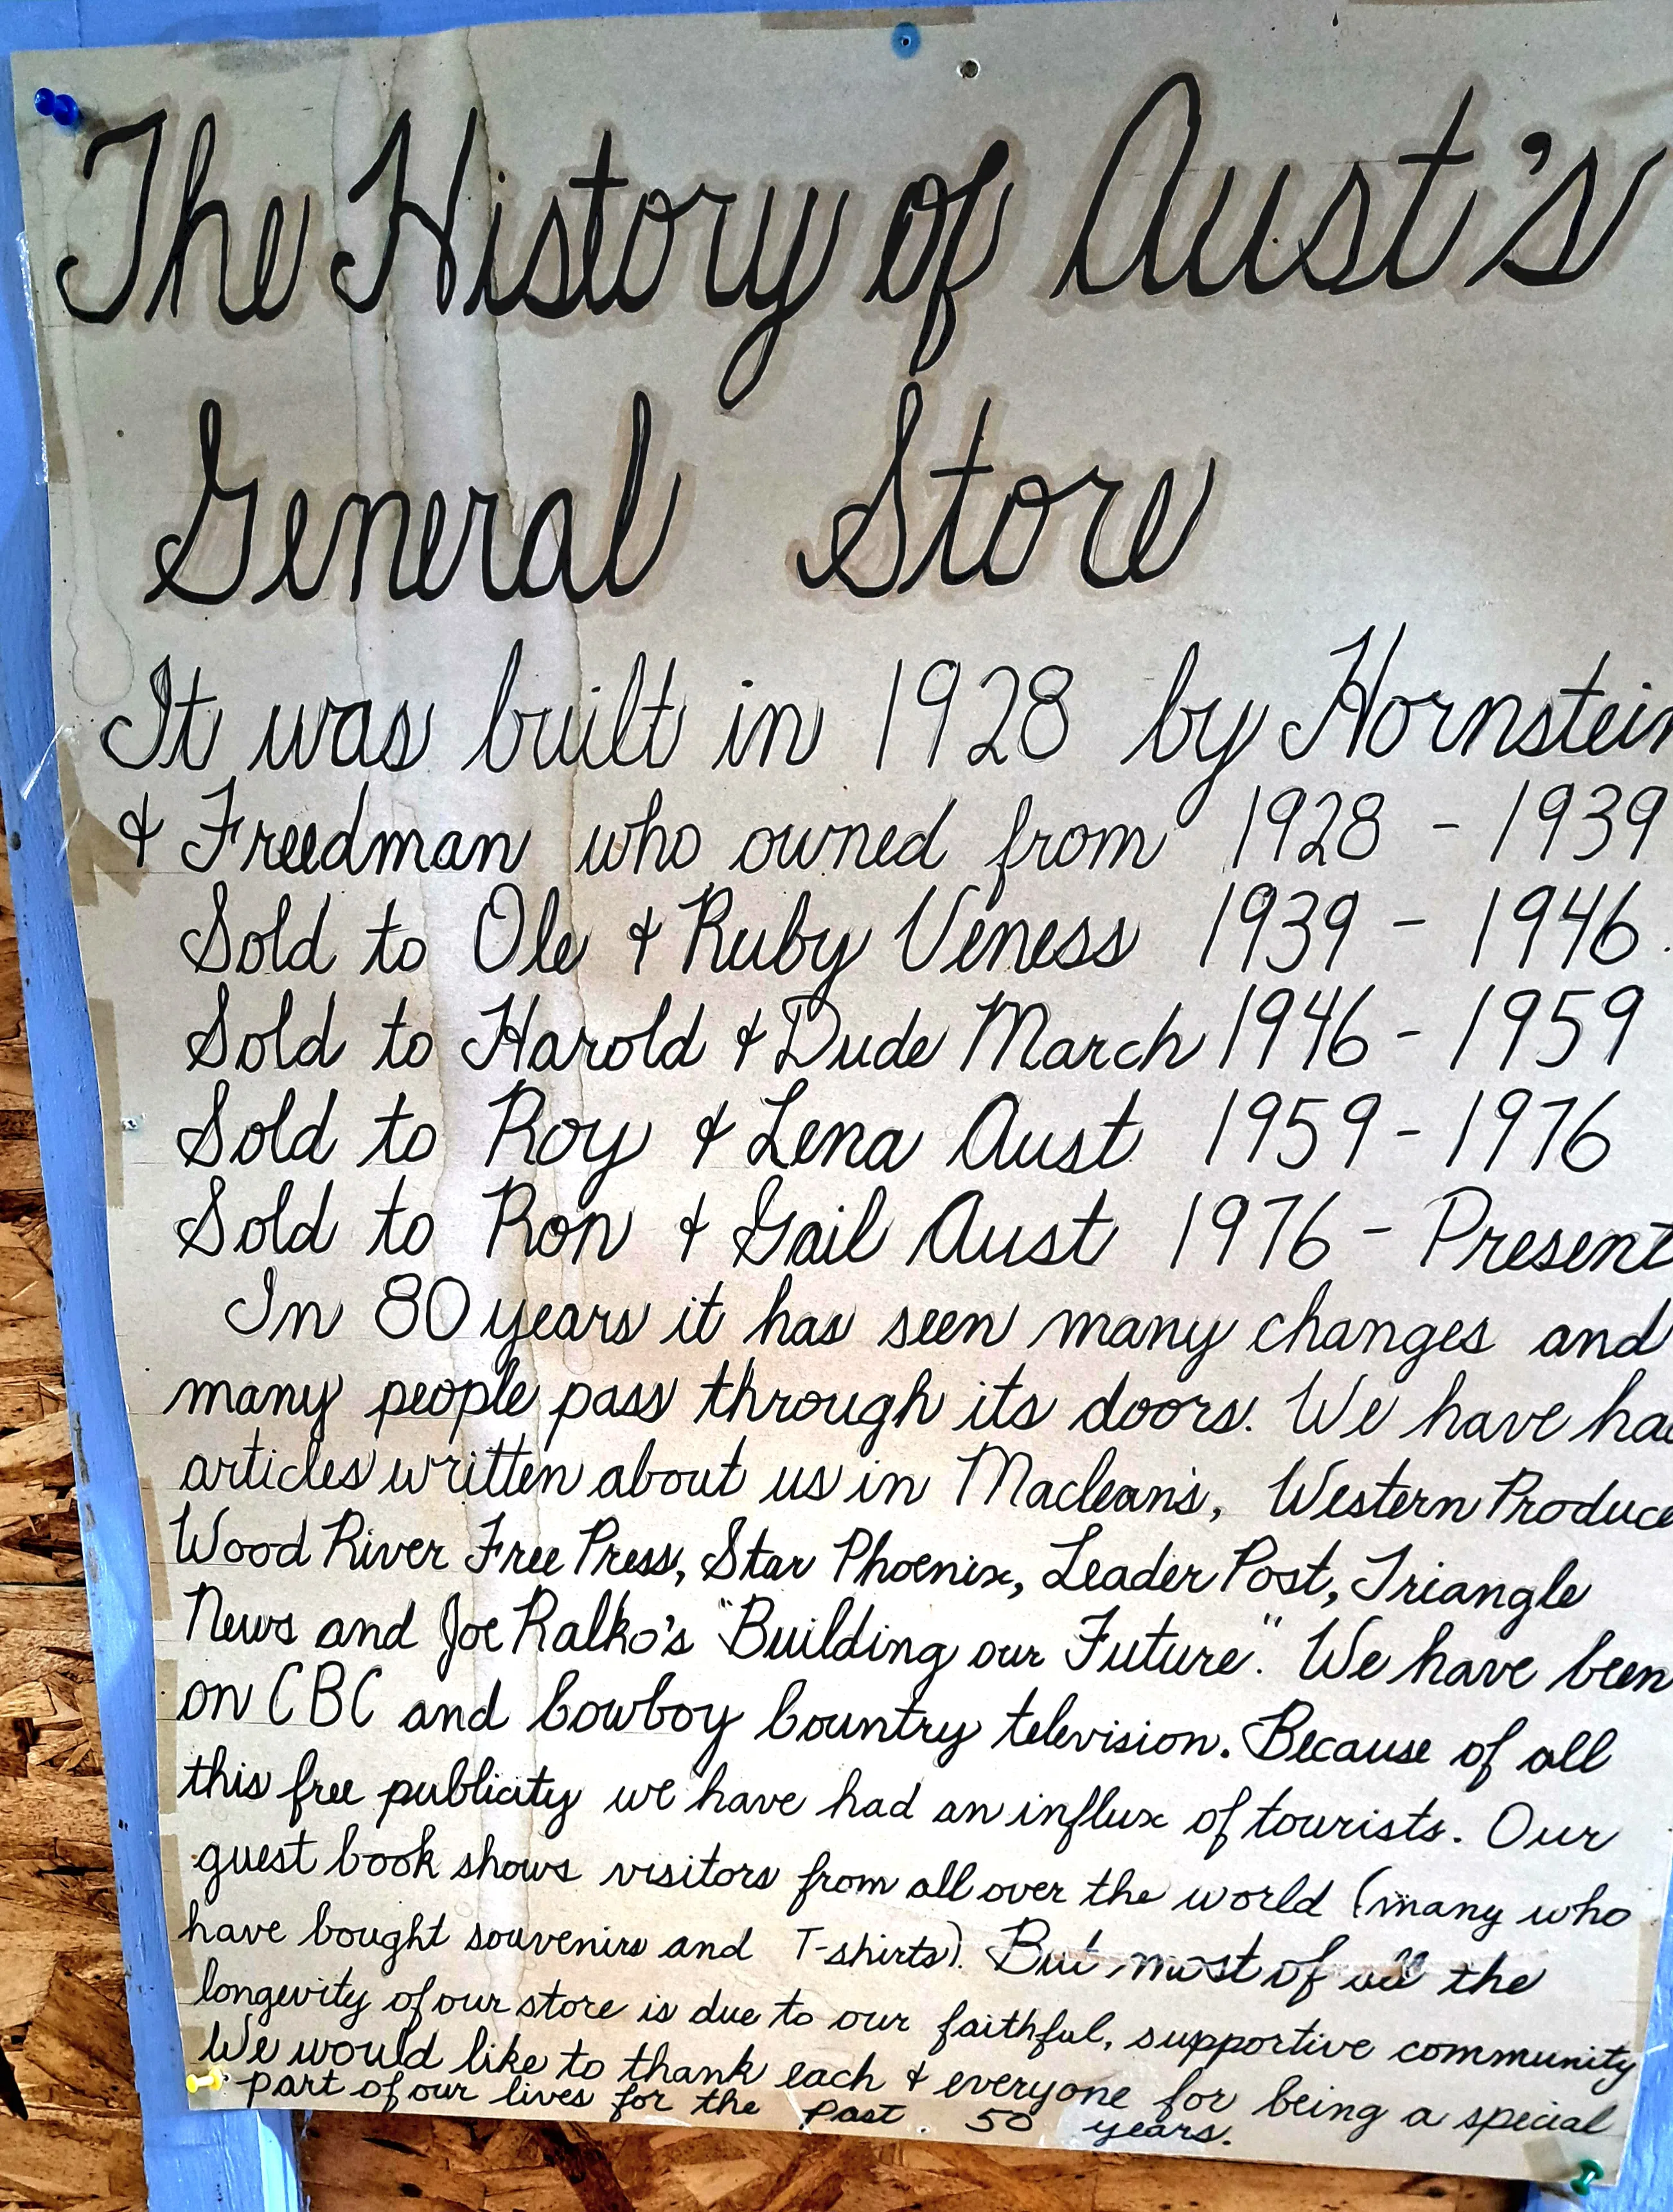 The History of Aust's
General Store
It was built in 1928 by Hornstein
& Freedman who owned from 1928 - 1939
Sold to Ole & Ruby Veness 1939 - 1946.
Sold to Harold & Dude March 1946 - 1959
Sold to Roy & Lena Aust 1959 - 1976
Sold to Ron & Gail Aust 1976 - Present
In 80 years it has seen many changes and
many people pass through its doors. We have ha
articles written about us in Macleans, Western Produce
Wood River Free Press, Star Phoenix, Leader Post, Triangle
News and Joe Ralko's "Building our Future". We have been
on CBC and Cowboy Country television. Because of all
this free publicity we have had an influx of tourists. Our
guest book shows visitors from all over the world (many who
have bought souvenirs and T-shirts). But most of all the
longevity of our store is due to our faithful, supportive community
We would like to thank each & everyone for being a special
part of our lives for the past 50 years.